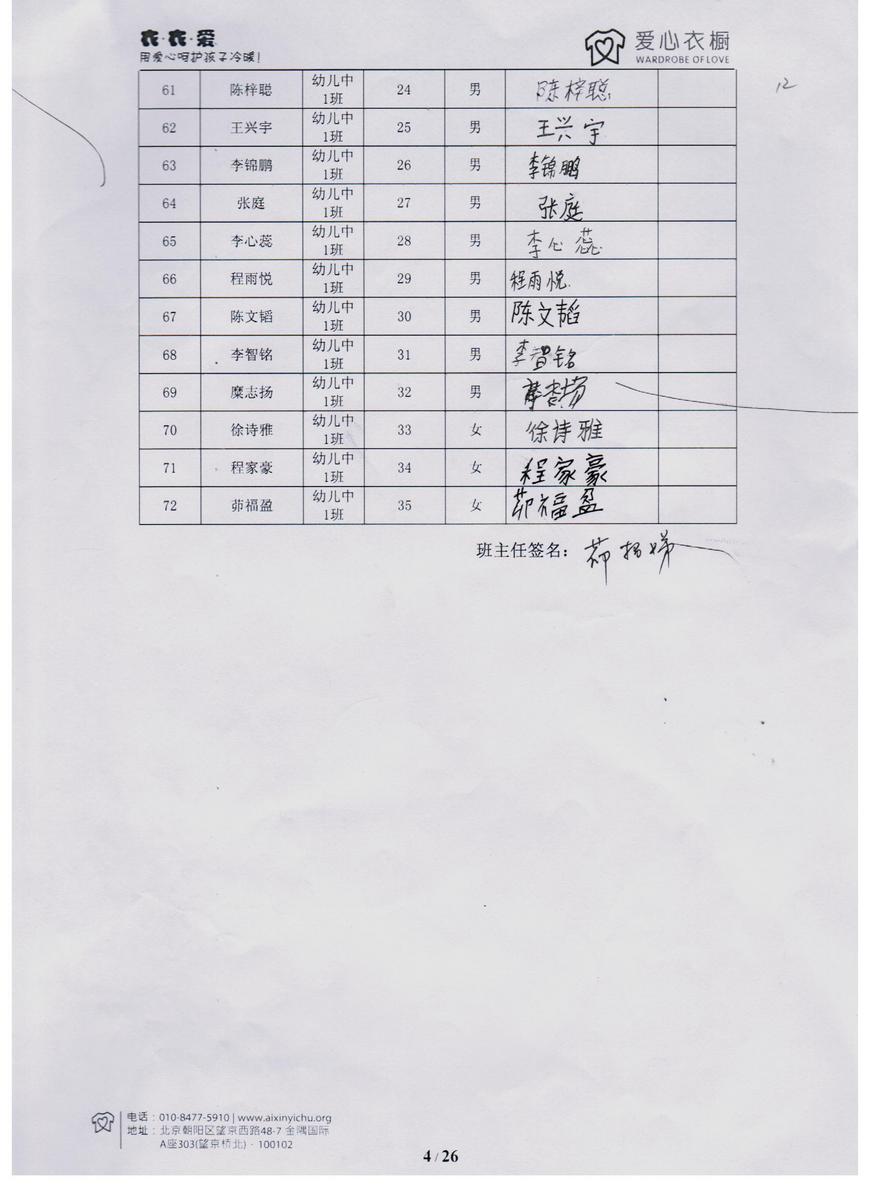 衣·衣·爱
用爱心呵护孩子冷暖!
爱心衣橱
WARDROBE OF LOVE
12
61 陈梓聪 幼儿中1班 24 男 陈梓聪
62 王兴宇 幼儿中1班 25 男 王兴宇
63 李锦鹏 幼儿中1班 26 男 李锦鹏
64 张庭 幼儿中1班 27 男 张庭
65 李心蕊 幼儿中1班 28 男 李心蕊
66 程雨悦 幼儿中1班 29 男 程雨悦
67 陈文韬 幼儿中1班 30 男 陈文韬
68 李智铭 幼儿中1班 31 男 李智铭
69 糜志扬 幼儿中1班 32 男
70 徐诗雅 幼儿中1班 33 女 徐诗雅
71 程家豪 幼儿中1班 34 女 程家豪
72 茆福盈 幼儿中1班 35 女 茆福盈
班主任签名:
电话:010-8477-5910 | www.aixinyichu.org
地址:北京朝阳区望京西路48-7 金隅国际
A座303(望京桥北) · 100102
4 / 26